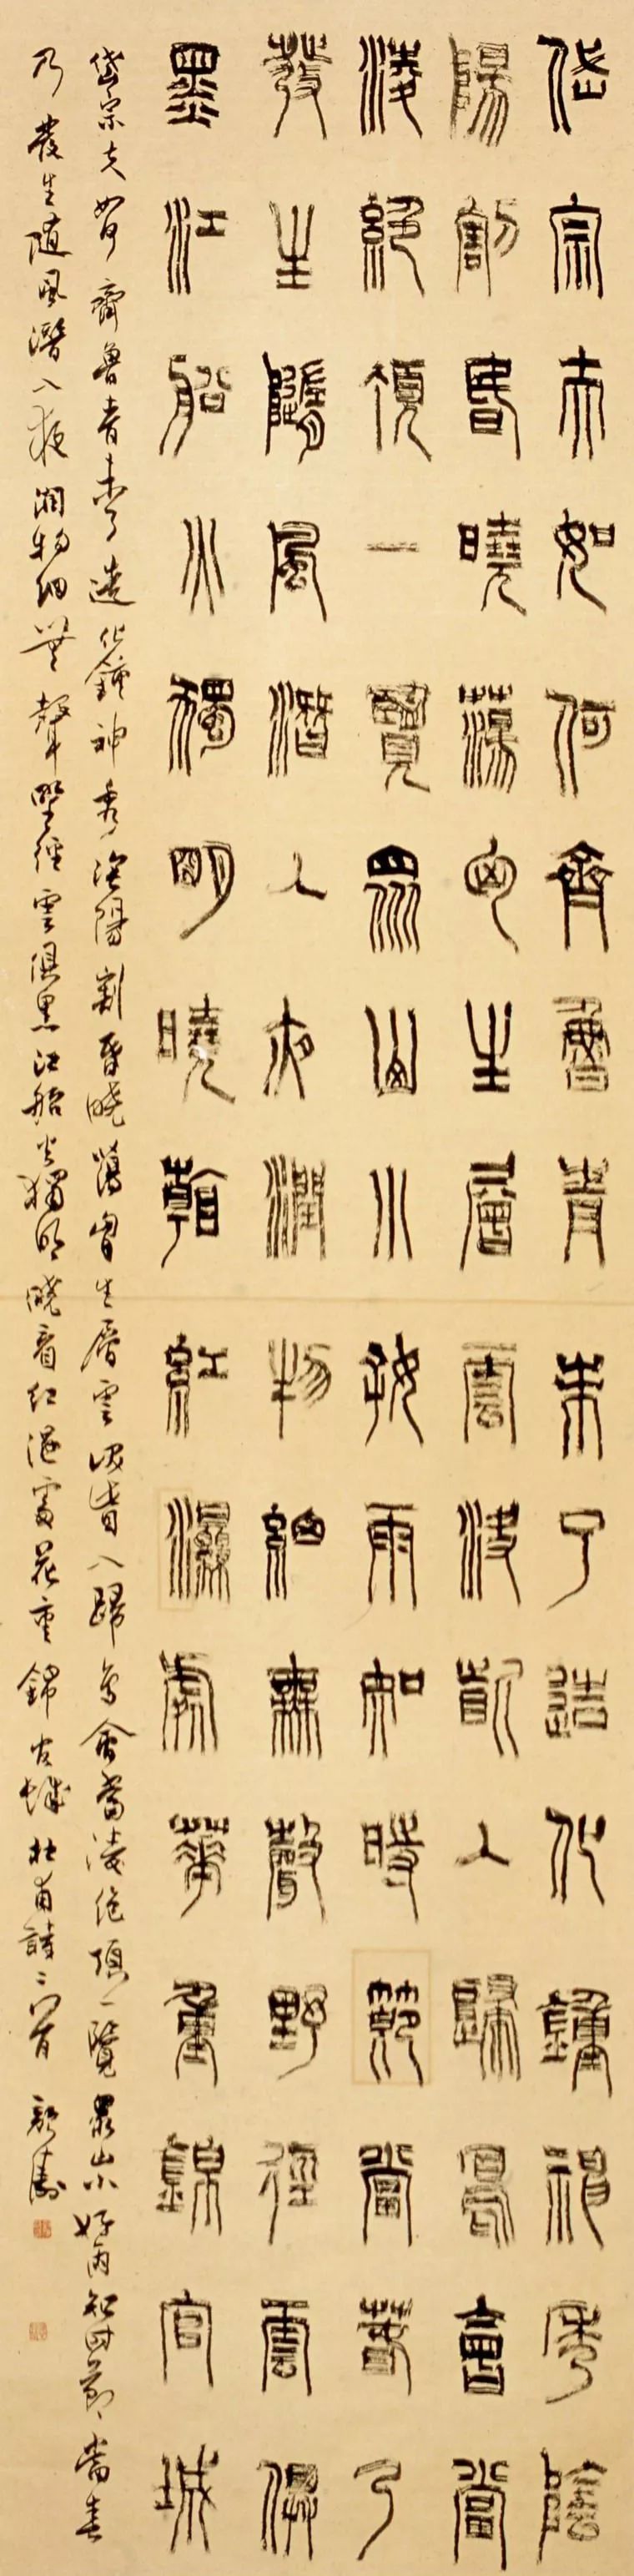 岱宗夫如何齊魯青未了造化鐘神秀陰
陽割昏曉蕩匈生層雲決眥入歸鳥會當
淩絕頂一覽眾山小好雨知時節當春乃
發生隨風潛入夜潤物細無聲野徑雲俱
墨江船火獨明曉看紅濕處華重錦官城
岱宗夫如何齊魯青未了造化鐘神秀陰陽割昏曉蕩胸生層雲決眥入歸鳥會當淩絕頂一覽眾山小好雨知時節當春
乃發生隨風潛入夜潤物細無聲野徑雲俱黑江船火獨明曉看紅濕處花重錦官城杜甫詩二首